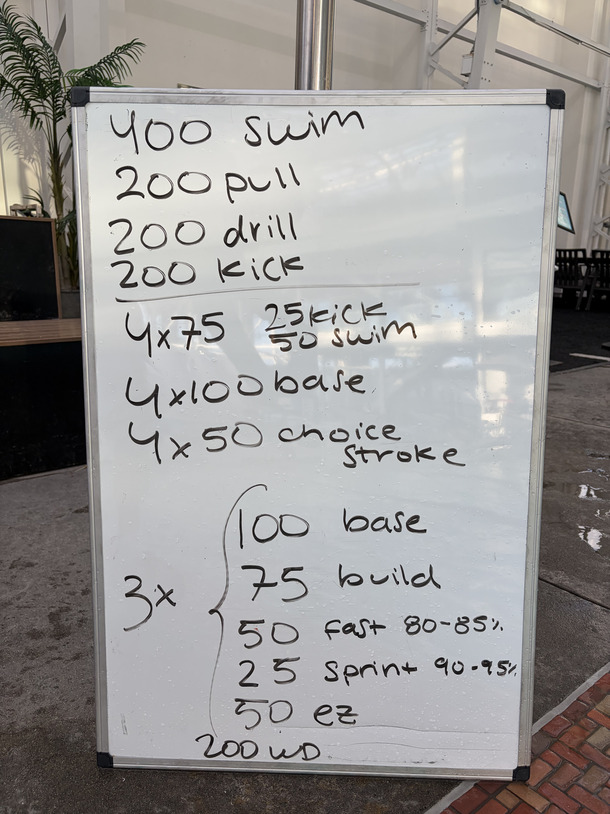 400 swim
200 pull
200 drill
200 kick
4x75 25 kick
50 swim
4x100 base
4x50 choice
stroke
3x
100 base
75 build
50 fast 80-85%
25 sprint 90-95%
50 ez
200 WD